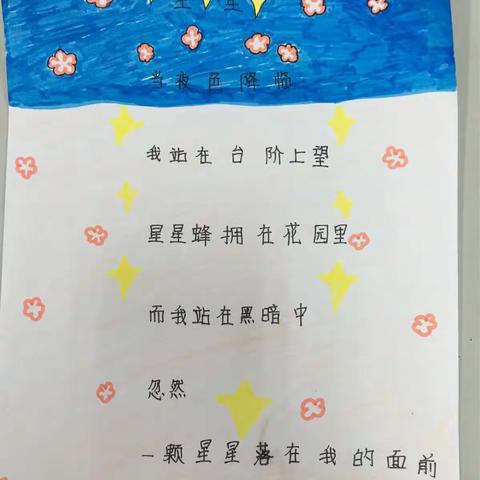 星星
当夜色降临
我站在台阶上望
星星蜂拥在花园里
而我站在黑暗中
忽然
一颗星星落在我的面前